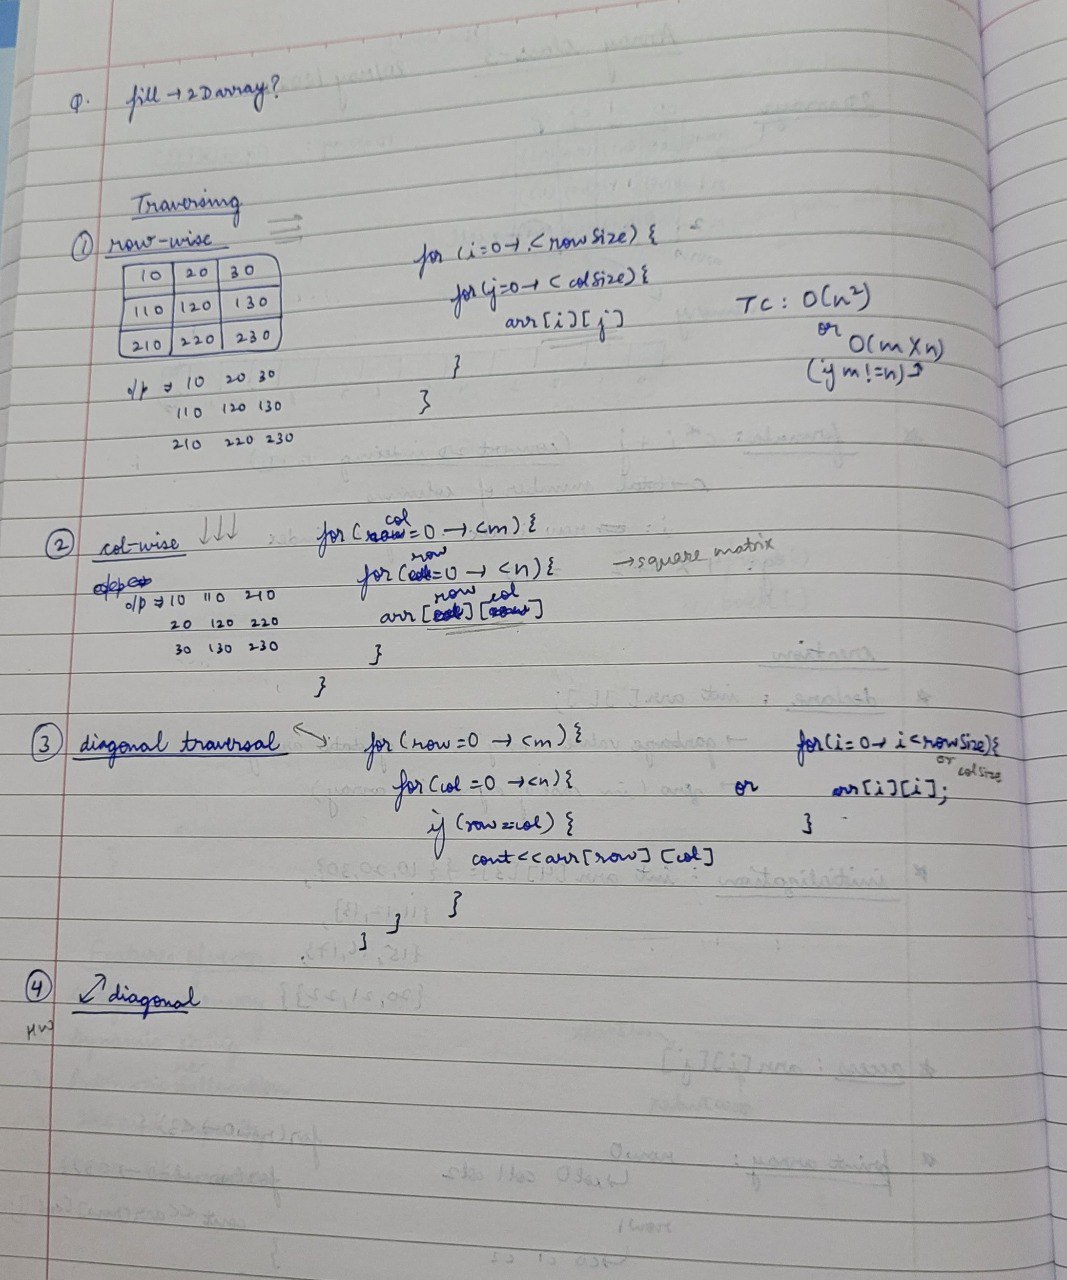 Q. fill → 2D array?
Traversing
① row-wise
10 20 30
110 120 130
210 220 230
o/p ⇒ 10 20 30
110 120 130
210 220 230
for (i=0 → < rowSize) {
for (j=0 → < colSize) {
arr [i][j]
}
}
TC : O(n²)
or O(m x n)
(if m != n)
② col-wise ↓↓↓
o/p ⇒ 10 110 210
20 120 220
30 130 230
for (col = 0 → < m) {
for (row = 0 → < n) {
arr [row] [col]
}
}
→ square matrix
③ diagonal traversal
for (row = 0 → < m) {
for (col = 0 → < n) {
if (row = col) {
cout << arr [row] [col]
}
}
}
or
for (i = 0 → i < rowSize) {
or colSize
arr [i] [i];
}
④ ↗ diagonal
HW